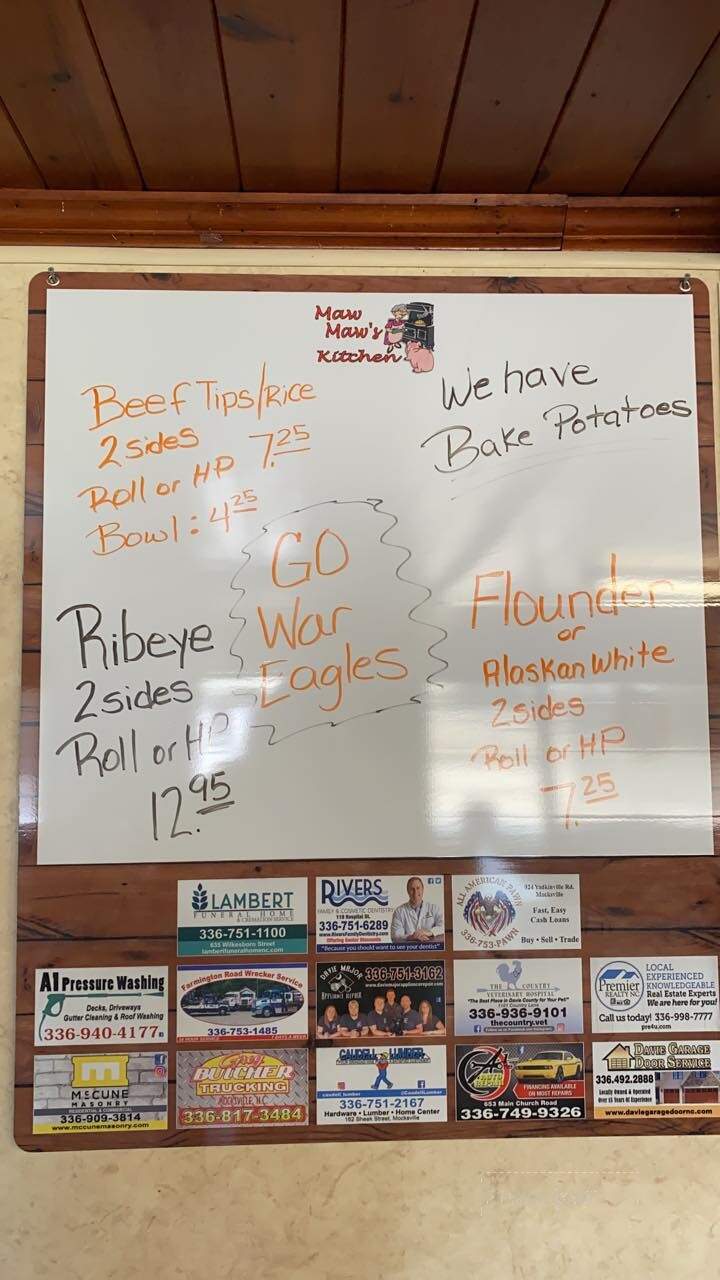 Maw
Maw's
Kitchen
Beef Tips/Rice
2 sides
Roll or HP 7.25
Bowl: 4.25
We have
Bake Potatoes
GO
War
Eagles
Ribeye
2 sides
Roll or HP
12.95
Flounder
or
Alaskan White
2 sides
Roll or HP
7.25
LAMBERT
FUNERAL HOME
& CREMATION SERVICE
336-751-1100
635 Wilkesboro Street
lambertfuneralhomenc.com
RIVERS
FAMILY & COSMETIC DENTISTRY
118 Hospital St.
336-751-6289
www.RiversFamilyDentistry.com
Offering Senior Discounts
"Because you should want to see your dentist"
ALL AMERICAN PAWN
336-753-PAWN
924 Yadkinville Rd.
Mocksville
Fast, Easy
Cash Loans
Buy • Sell • Trade
A1 Pressure Washing
Decks, Driveways
Gutter Cleaning & Roof Washing
336-940-4177
Farmington Road Wrecker Service
336-753-1485
24 HOUR SERVICE
7 DAYS A WEEK
DAVIE MAJOR
APPLIANCE REPAIR
336-751-3162
www.daviemajorappliancerepair.com
THE COUNTRY
VETERINARY HOSPITAL
"The Best Place in Davie County for Your Pet!"
336-936-9101
thecountry.vet
Premier
REALTY NC
LOCAL
EXPERIENCED
KNOWLEDGEABLE
Real Estate Experts
We are here for you!
Call us today! 336-998-7777
pre4u.com
McCUNE
MASONRY
RESIDENTIAL & COMMERCIAL
336-909-3814
www.mccunemasonry.com
Greg
BUTCHER
TRUCKING
MOCKSVILLE, N.C.
336-817-3484
CAUDELL LUMBER
336-751-2167
Hardware • Lumber • Home Center
162 Sheek Street, Mocksville
FINANCING AVAILABLE
ON MOST REPAIRS
653 Main Church Road
336-749-9326
DAVIE GARAGE
DOOR SERVICE
336.492.2888
Locally Owned & Operated
Over 15 Years Of Experience
www.daviegaragedoornc.com